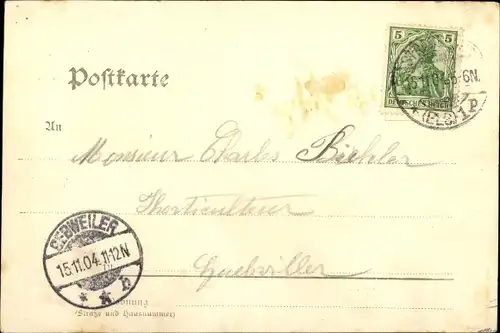 5 5
DEUTSCHES REICH
15.11.04. 5-6N.
* (ELS) 1 p
Postkarte
An
Monsieur Charles
Horticulteur
GEBWEILER
15.11.04. 11-12N
* * p
Guebviller
Wohnung
(Straße und Hausnummer)